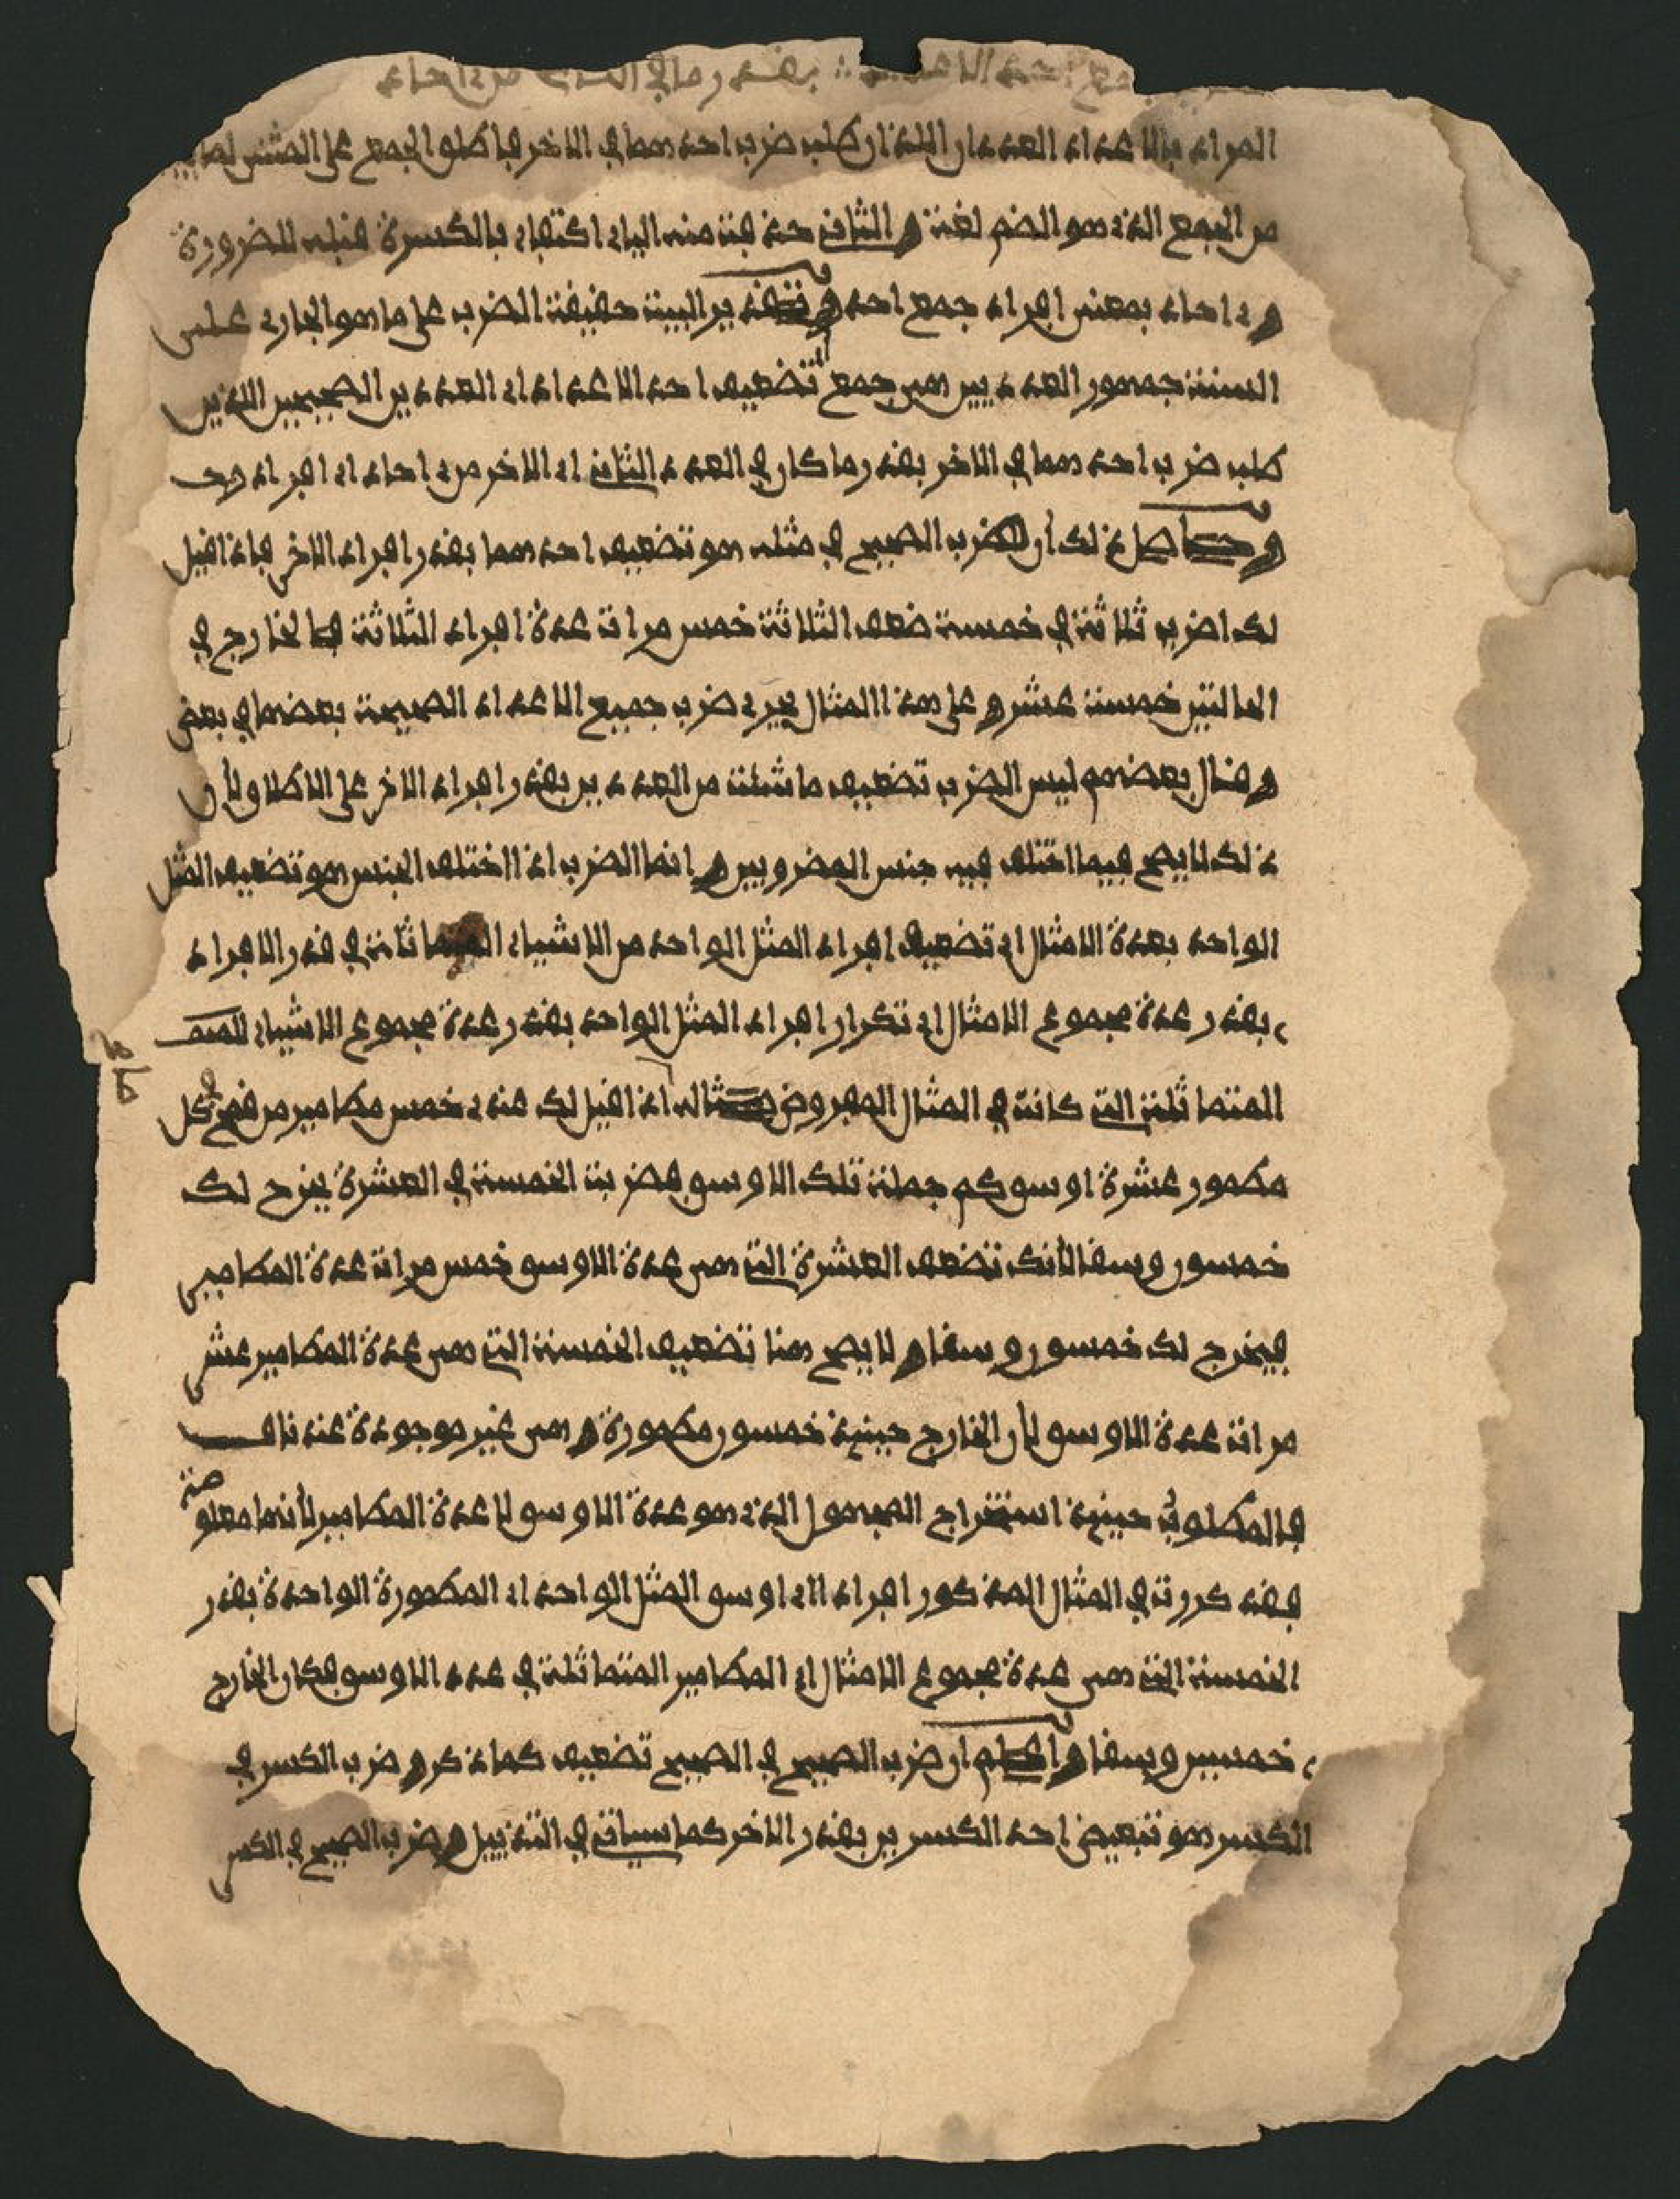 جمع احد الاعداد :: بقدر ما في الثان من احاد
المراد بالاعداد العددان اللذان طلب ضرب احدهما في الاخر فاطلق الجمع على المثنى
من الجمع الذي هو الضم لغة والثان حذفت منه الياء اكتفاء بالكسرة قبله للضرورة
واحاد بمعنى افراد جمع احد وتقدير البيت حقيقة الضرب على ما هو الجاري على
السنة جمهور العدديين هي جمع اي تضعيف احد الاعداد اي العددين الصحيحين اللذين
طلب ضرب احدهما في الاخر بقدر ما كان في العدد الثاني اي الاخر من احاد اي افراد
وحاصل ذلك ان ضرب الصحيح في مثله هو تضعيف احدهما بقدر افراد الاخر فاذا قيل
لك اضرب ثلاثة في خمسة ضعف الثلاثة خمس مرات عدة افراد الثلاثة فالخارج في
الحالتين خمسة عشر وعلى هذا المثال يجري ضرب جميع الاعداد الصحيحة بعضها في بعض
وقال بعضهم ليس الضرب تضعيف ما شئت من العددين بقدر افراد الاخر على الاطلاق لأن
ذلك لا يصح فيما اختلف فيه جنس المضروبين وانما الضرب اذا اختلف الجنس هو تضعيف المثل
الواحد بعدة الامثال اي تضعيف افراد المثل الواحد من الاشياء المتماثلة في قدر الافراد
بقدر عدة مجموع الامثال اي تكرار افراد المثل الواحد بقدر عدة مجموع الاشياء
المتماثلة التي كانت في المثال المفروض مثاله اذا قيل لك عندي خمس مطامير من قمح في كل
مطمور عشرة اوسق كم جملة تلك الاوسق فضربت الخمسة في العشرة يخرج لك
خمسون وسقا لانك تضعف العشرة التي هي عدة الاوسق خمس مرات عدة المطامير
فيخرج لك خمسون وسقا ولا يصح هنا تضعيف الخمسة التي هي عدة المطامير عشر
مرات عدة الاوسق لان الخارج حينئذ خمسون مطمورة وهي غير موجودة عندنا
فالمطلوب حينئذ استخراج المجهول الذي هو عدة الاوسق لا عدة المطامير لأنها معلومة
فقد كررت في المثال المذكور افراد اي اوسق المثل الواحد اي المطمورة الواحدة بقدر
الخمسة التي هي عدة مجموع الامثال اي المطامير المتماثلة في عدد الاوسق فكان الخارج
خمسين وسقا واعلم ان ضرب الصحيح في الصحيح تضعيف كما ذكر وضرب الكسر في
الكسر هو تبعيض احد الكسرين بقدر الاخر كما سياتي في التذييل وضرب الصحيح في الكسر